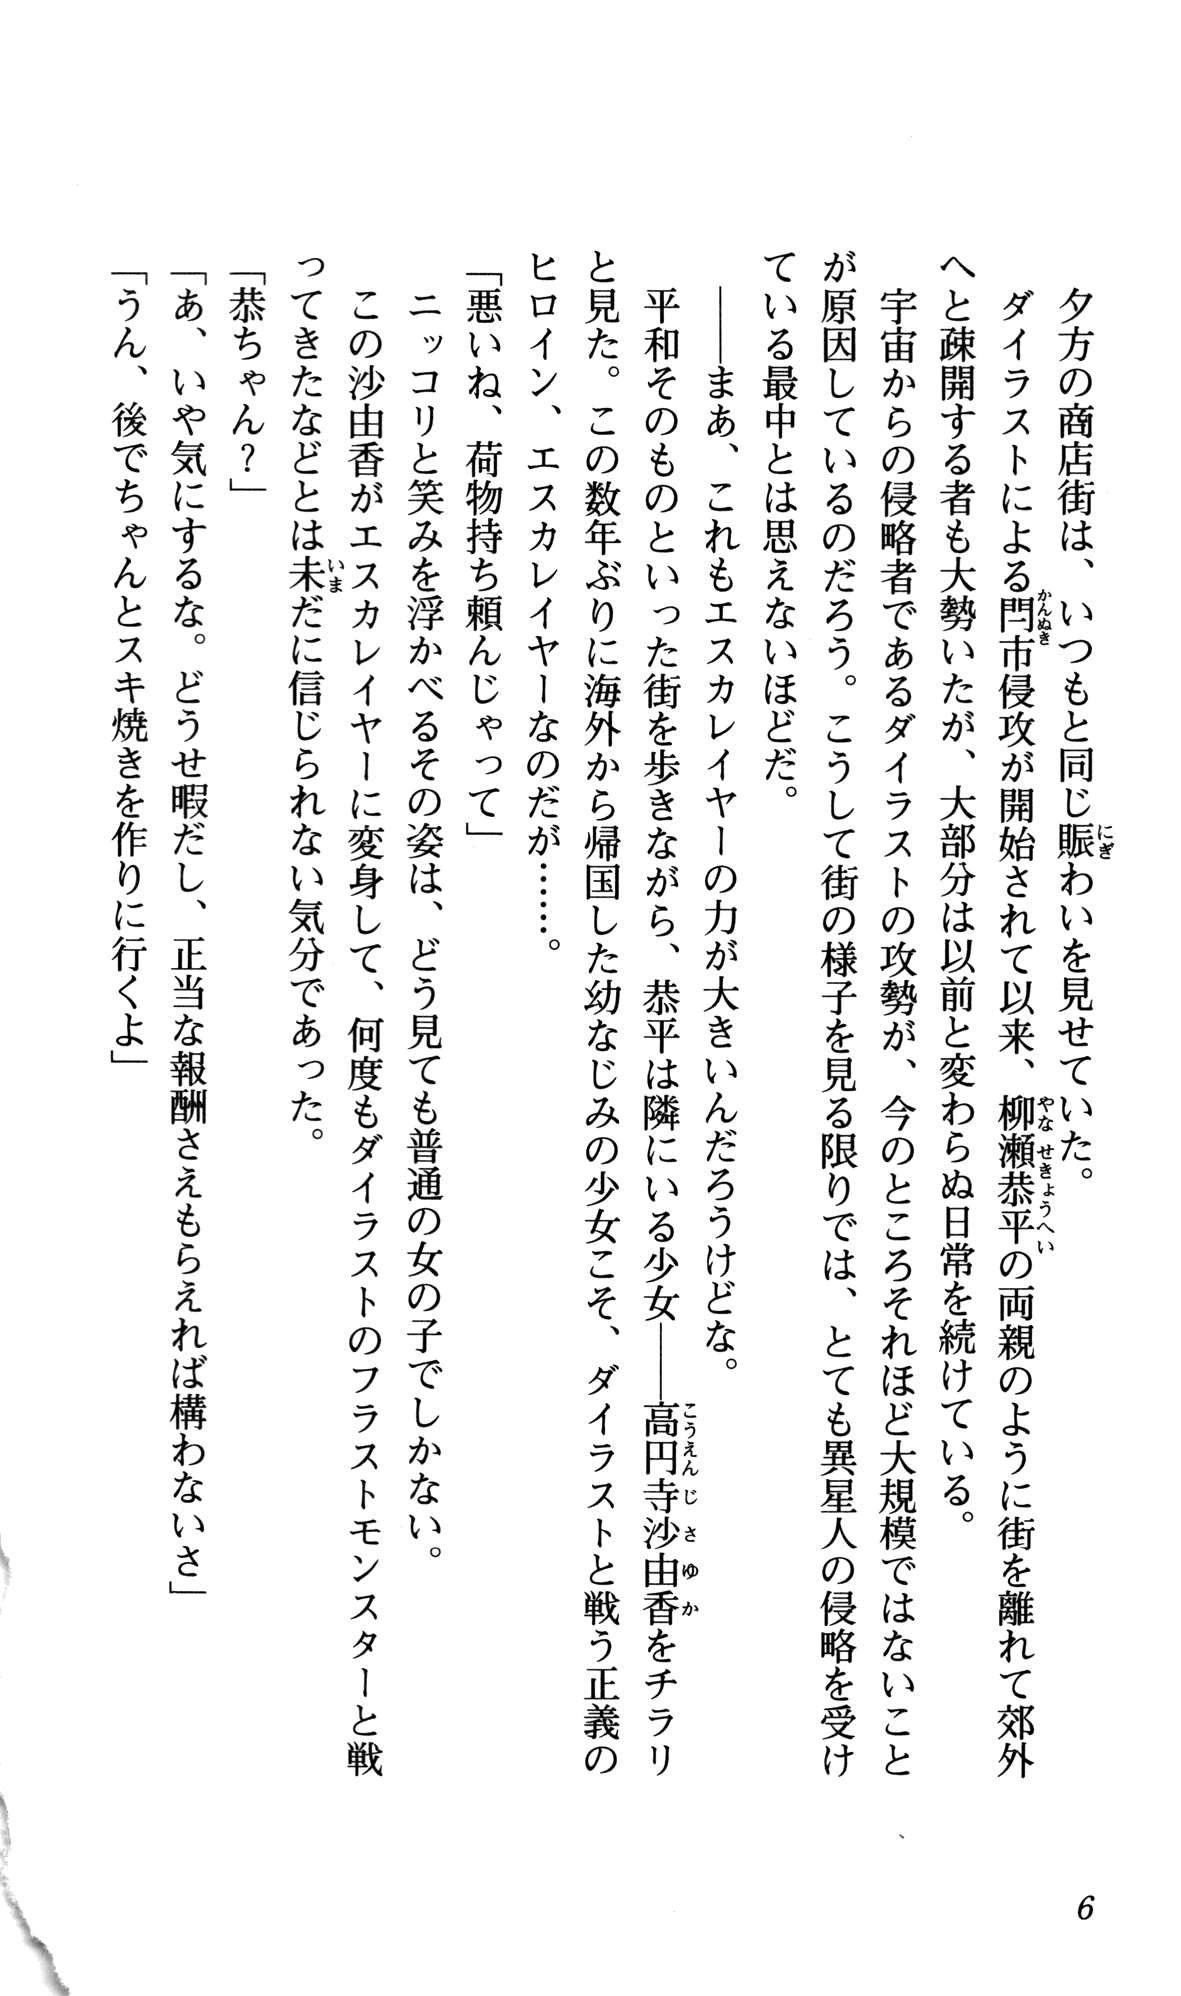 夕方の商店街は、いつもと同じ賑わいを見せていた。
ダイラストによる閂市侵攻が開始されて以来、柳瀬恭平の両親のように街を離れて郊外
へと疎開する者も大勢いたが、大部分は以前と変わらぬ日常を続けている。
宇宙からの侵略者であるダイラストの攻勢が、今のところそれほど大規模ではないこと
が原因しているのだろう。こうして街の様子を見る限りでは、とても異星人の侵略を受け
ている最中とは思えないほどだ。
――まあ、これもエスカレイヤーの力が大きいんだろうけどな。
平和そのものといった街を歩きながら、恭平は隣にいる少女――高円寺沙由香をチラリ
と見た。この数年ぶりに海外から帰国した幼なじみの少女こそ、ダイラストと戦う正義の
ヒロイン、エスカレイヤーなのだが……。
「悪いね、荷物持ち頼んじゃって」
ニッコリと笑みを浮かべるその姿は、どう見ても普通の女の子でしかない。
この沙由香がエスカレイヤーに変身して、何度もダイラストのフラストモンスターと戦
ってきたなどとは未だに信じられない気分であった。
「恭ちゃん？」
「あ、いや気にするな。どうせ暇だし、正当な報酬さえもらえれば構わないさ」
「うん、後でちゃんとスキ焼きを作りに行くよ」
6